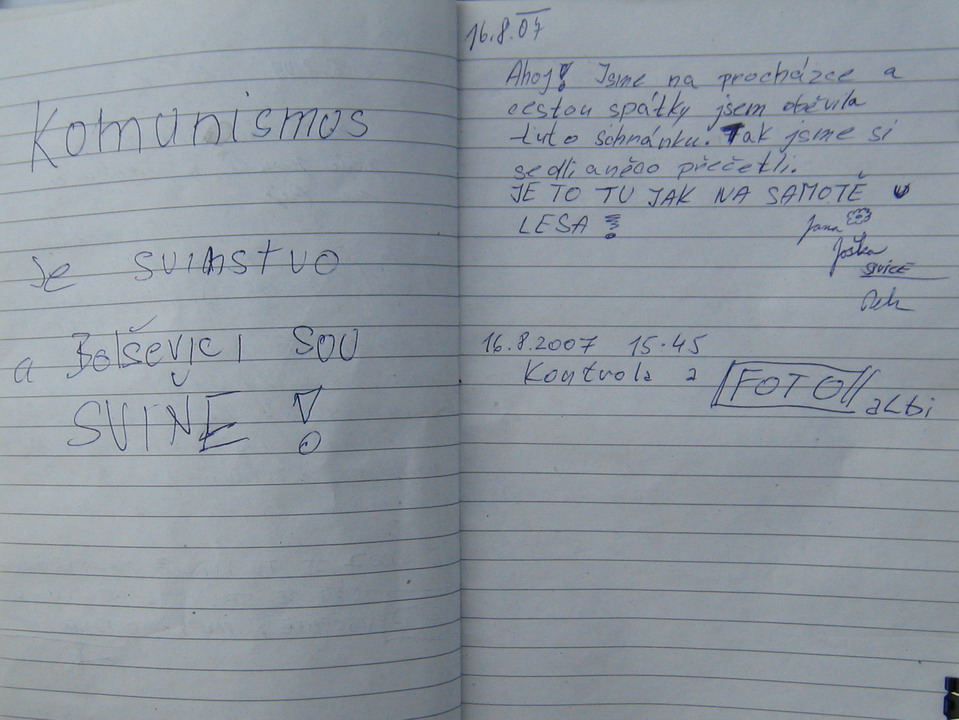 Komunismos
je svinstvo
a Bolševici sou
SVINĚ !
16.8.07
Ahoj! Jsme na procházce a
cestou spátky jsem oběvila
tuto schránku. Tak jsme si
sedli a něco přečetli.
JE TO TU JAK NA SAMOTĚ U
LESA !
Jana
Joška
16.8.2007 15.45
Kontrola a FOTO albi